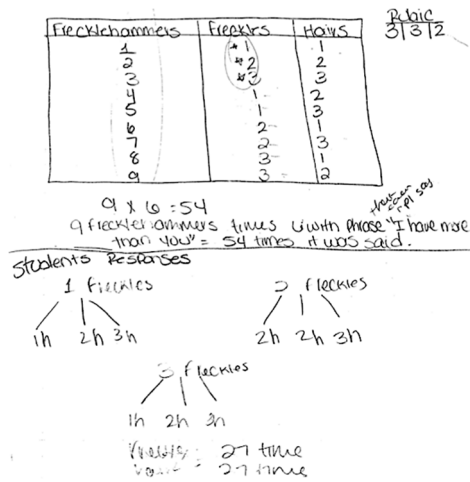 Rubic
3|3|2
Frecklehammers Freckles Hairs
1 * 1 1
2 * 2 2
3 * 3 3
4 1 2
5 1 3
6 2 1
7 2 3
8 3 1
9 3 2
9 x 6 = 54
that each
rpl say
9 frecklehammers times 6 with phrase "I have more
than you" = 54 times it was said.
Students Responses
1 freckles
1h 2h 3h
2 freckles
2h 2h 3h
3 freckles
1h 2h 3h
27 time
27 time